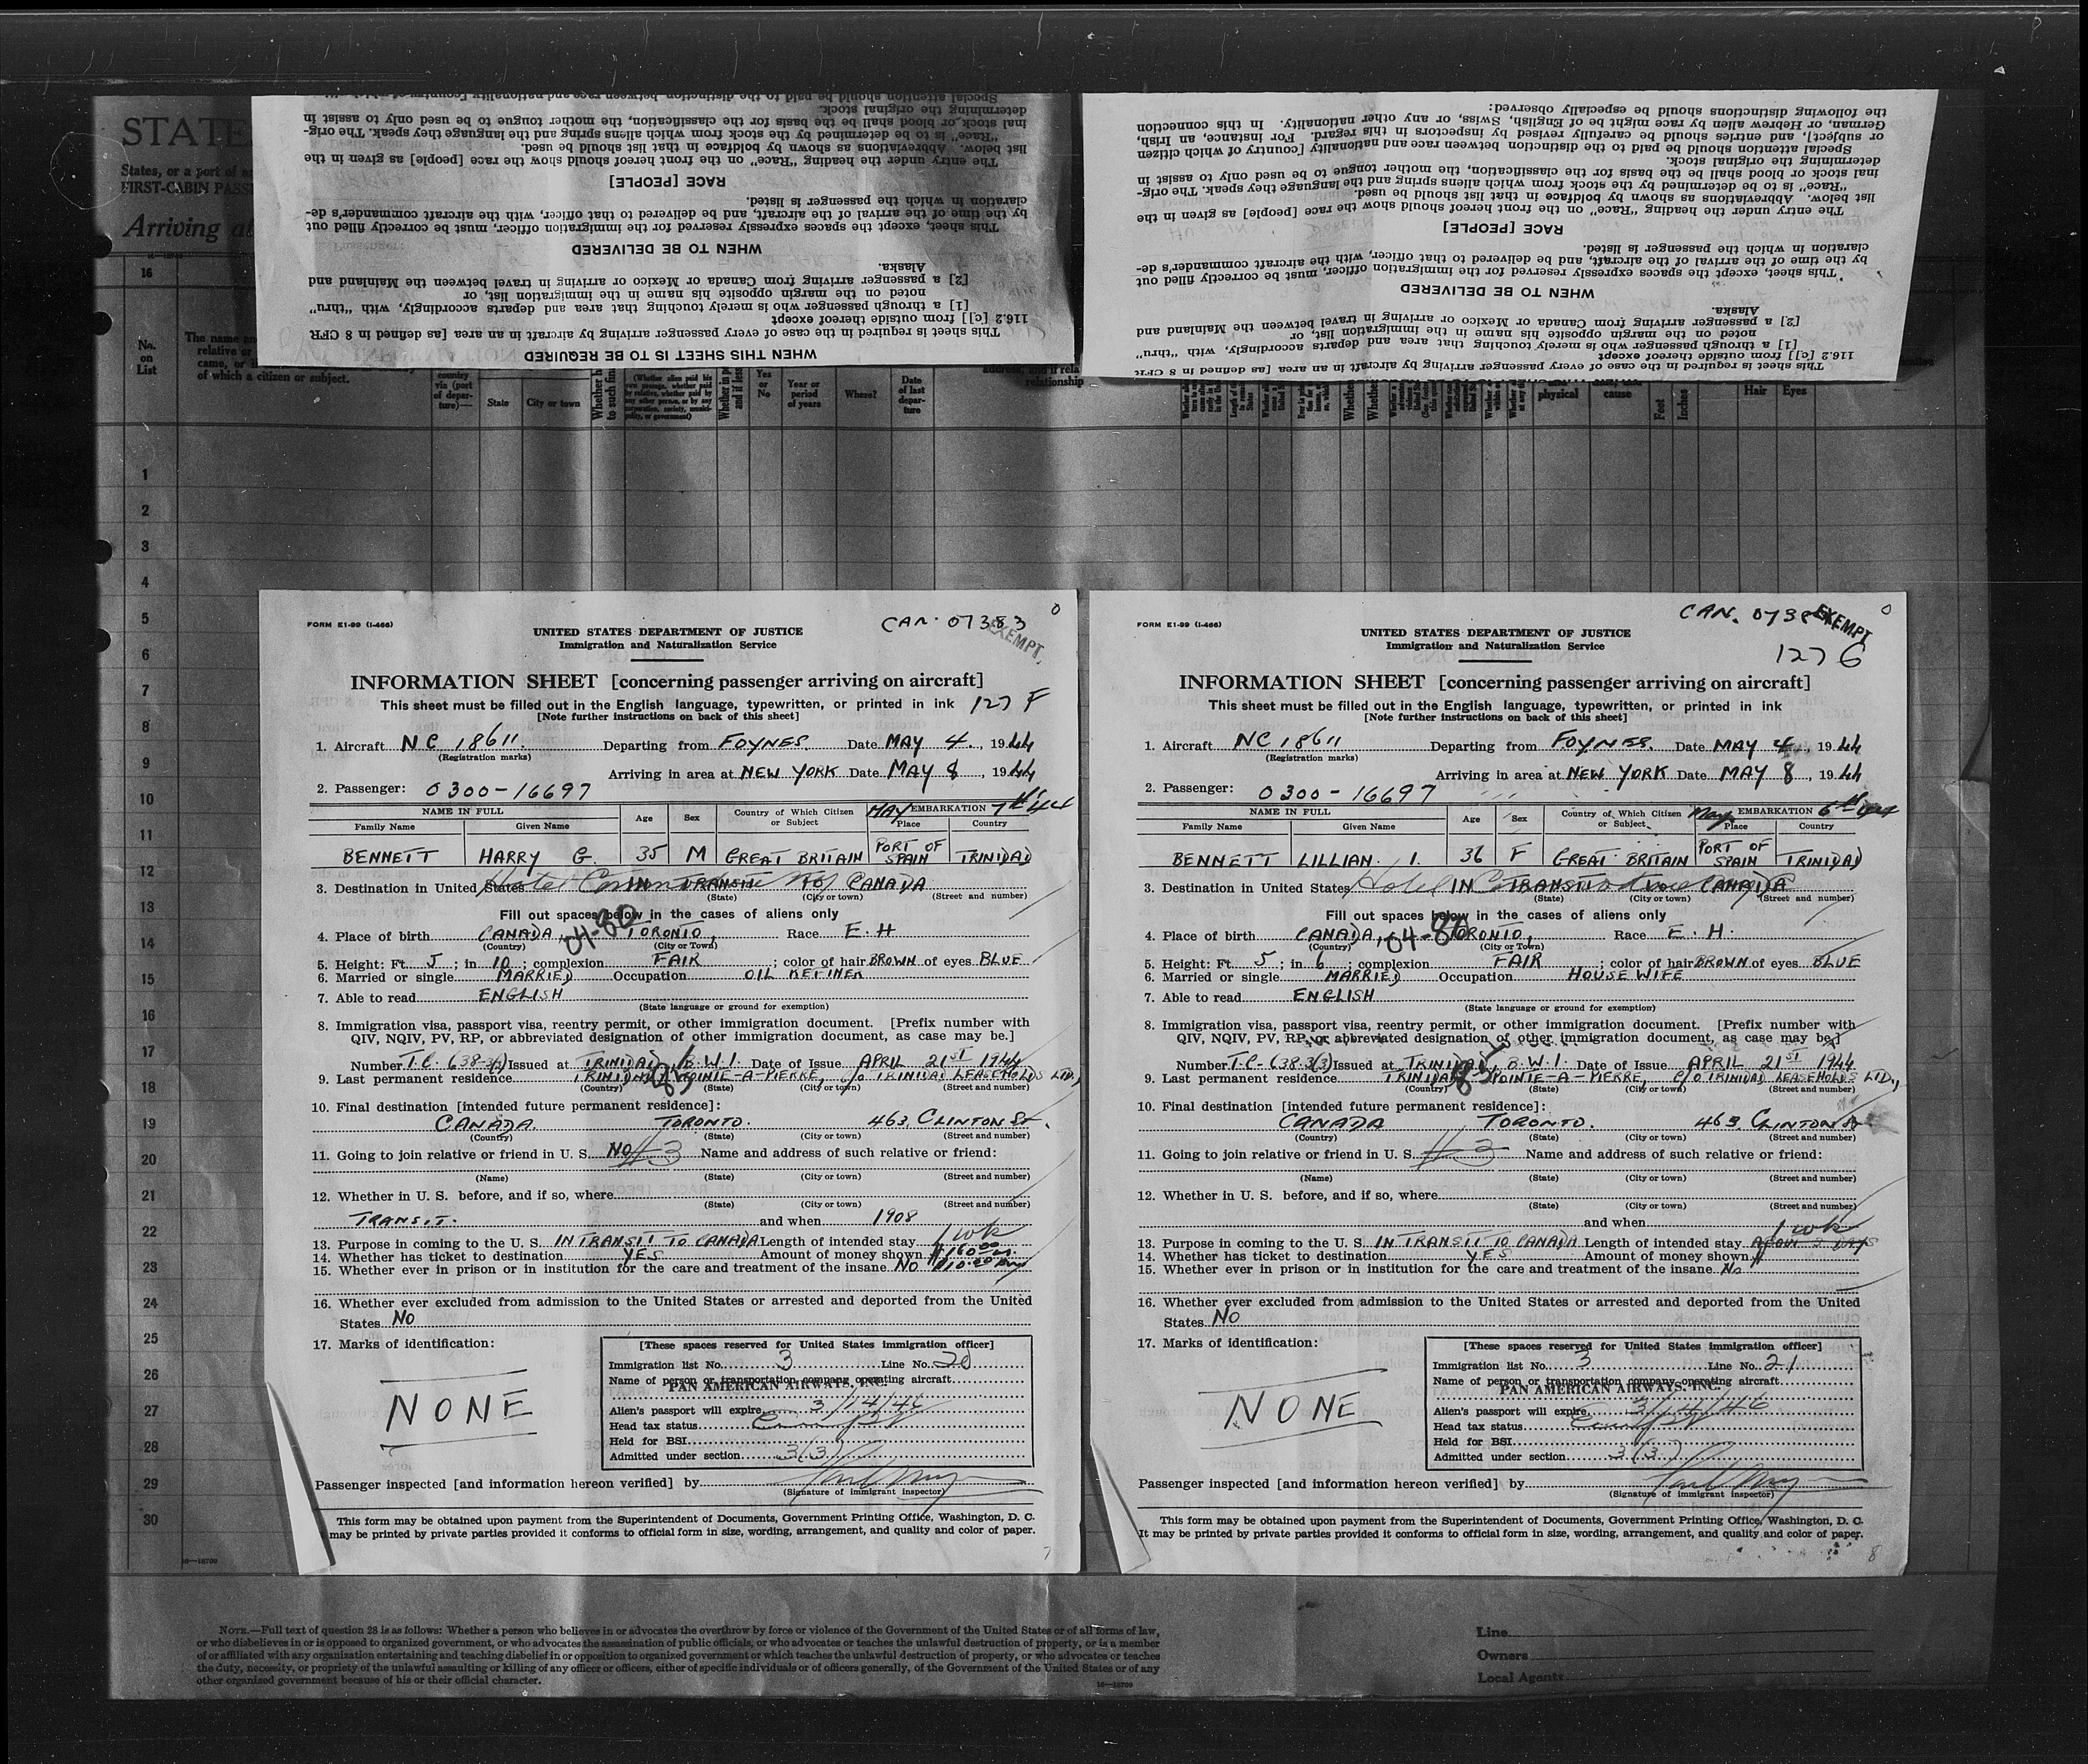 STATE
States, or a port of
FIRST-CABIN PASS
Arriving at
16
No.
on
List
The name and
relative or
came, or
of which a citizen or subject.
country
via (port
of depar-
ture)—
State
City or town
(Whether alien paid his
own passage, whether paid
by relative, whether paid by
any other person, or by any
corporation, society, munici-
pality, or government)
Yes
or
No
Year or
period
of years
Where?
Date
of last
depar-
ture
address, and if rela
relationship
physical
cause
Feet
Inches
Hair
Eyes
WHEN THIS SHEET IS TO BE REQUIRED
This sheet is required in the case of every passenger arriving by aircraft in an area [as defined in 8 CFR
116.2 [c]] from outside thereof except
[1] a through passenger who is merely touching that area and departs accordingly, with "thru"
noted on the margin opposite his name in the immigration list, or
[2] a passenger arriving from Canada or Mexico or arriving in travel between the Mainland and
Alaska.
WHEN TO BE DELIVERED
This sheet, except the spaces expressly reserved for the immigration officer, must be correctly filled out
by the time of the arrival of the aircraft, and be delivered to that officer, with the aircraft commander's de-
claration in which the passenger is listed.
RACE [PEOPLE]
The entry under the heading "Race" on the front hereof should show the race [people] as given in the
list below. Abbreviations as shown by boldface in that list should be used.
"Race" is to be determined by the stock from which aliens spring and the language they speak. The orig-
inal stock or blood shall be the basis for the classification, the mother tongue to be used only to assist in
determining the original stock.
Special attention should be paid to the distinction between race and nationality [country of which citizen
This sheet is required in the case of every passenger arriving by aircraft in an area [as defined in 8 CFR
116.2 [c]] from outside thereof except
[1] a through passenger who is merely touching that area and departs accordingly, with "thru"
noted on the margin opposite his name in the immigration list, or
[2] a passenger arriving from Canada or Mexico or arriving in travel between the Mainland and
Alaska.
WHEN TO BE DELIVERED
This sheet, except the spaces expressly reserved for the immigration officer, must be correctly filled out
by the time of the arrival of the aircraft, and be delivered to that officer, with the aircraft commander's de-
claration in which the passenger is listed.
RACE [PEOPLE]
The entry under the heading "Race" on the front hereof should show the race [people] as given in the
list below. Abbreviations as shown by boldface in that list should be used.
"Race" is to be determined by the stock from which aliens spring and the language they speak. The orig-
inal stock or blood shall be the basis for the classification, the mother tongue to be used only to assist in
determining the original stock.
Special attention should be paid to the distinction between race and nationality [country of which citizen
or subject], and entries should be carefully revised by inspectors in this regard. For instance, an Irish,
German, or Hebrew alien by race might be of English, Swiss, or any other nationality. In this connection
the following distinctions should be especially observed:
1
2
3
4
5
6
7
8
9
10
11
12
13
14
15
16
17
18
19
20
21
22
23
24
25
26
27
28
29
30
16—18700
FORM E1-99 (I-466)
CAN. 07383
0
EXEMPT
UNITED STATES DEPARTMENT OF JUSTICE
Immigration and Naturalization Service
INFORMATION SHEET [concerning passenger arriving on aircraft]
This sheet must be filled out in the English language, typewritten, or printed in ink 127 F
[Note further instructions on back of this sheet]
1. Aircraft NC 18611. Departing from FOYNES. Date MAY 4., 1944
(Registration marks)
Arriving in area at NEW YORK Date MAY 8, 1944
2. Passenger: 0300-16697
NAME IN FULL Age Sex Country of Which Citizen or Subject MAY EMBARKATION 7th 44
Family Name Given Name Place Country
BENNETT HARRY G. 35 M GREAT BRITAIN PORT OF SPAIN TRINIDAD
3. Destination in United States Hotel IN TRANSIT TO CANADA
(State) (City or town) (Street and number)
Fill out spaces below in the cases of aliens only
04-80
4. Place of birth CANADA, TORONTO, Race E. H
(Country) (City or Town)
5. Height: Ft. 5; in 10; complexion FAIR; color of hair BROWN of eyes BLUE
6. Married or single MARRIED Occupation OIL REFINER
7. Able to read ENGLISH
(State language or ground for exemption)
8. Immigration visa, passport visa, reentry permit, or other immigration document. [Prefix number with
QIV, NQIV, PV, RP, or abbreviated designation of other immigration document, as case may be.]
Number T.C. (38-3() Issued at TRINIDAD, B.W.I. Date of Issue APRIL 21ST 1944
9. Last permanent residence TRINIDAD, POINTE-A-PIERRE, c/o TRINIDAD LEASEHOLDS LTD.,
(Country) (State) (City or town) (Street and number)
10. Final destination [intended future permanent residence]:
CANADA. TORONTO. 463, CLINTON St.
(Country) (State) (City or town) (Street and number)
11. Going to join relative or friend in U. S. NO #3 Name and address of such relative or friend:
(Name) (State) (City or town) (Street and number)
12. Whether in U. S. before, and if so, where
(State) (City or town) (Street and number)
TRANSIT. and when 1908
13. Purpose in coming to the U. S. IN TRANSIT TO CANADA Length of intended stay 1 wk
14. Whether has ticket to destination YES Amount of money shown $160.00
15. Whether ever in prison or in institution for the care and treatment of the insane NO
16. Whether ever excluded from admission to the United States or arrested and deported from the United
States NO
17. Marks of identification:
NONE
[These spaces reserved for United States immigration officer]
Immigration list No. 3 Line No. 20
Name of person or transportation company operating aircraft
PAN AMERICAN AIRWAYS, INC.
Alien's passport will expire 3/14/46
Head tax status Exempt
Held for BSI
Admitted under section 3(3)
Passenger inspected [and information hereon verified] by
(Signature of immigrant inspector)
This form may be obtained upon payment from the Superintendent of Documents, Government Printing Office, Washington, D. C.
may be printed by private parties provided it conforms to official form in size, wording, arrangement, and quality and color of paper.
7
FORM E1-99 (I-466)
CAN. 0738
EXEMPT
0
127 G
UNITED STATES DEPARTMENT OF JUSTICE
Immigration and Naturalization Service
INFORMATION SHEET [concerning passenger arriving on aircraft]
This sheet must be filled out in the English language, typewritten, or printed in ink
[Note further instructions on back of this sheet]
1. Aircraft NC 18611 Departing from FOYNES. Date MAY 4, 1944
(Registration marks)
Arriving in area at NEW YORK Date MAY 8, 1944
2. Passenger: 0300-16697
NAME IN FULL Age Sex Country of Which Citizen or Subject May EMBARKATION 6th
Family Name Given Name Place Country
BENNETT LILLIAN. I. 36 F GREAT BRITAIN PORT OF SPAIN TRINIDAD
3. Destination in United States Hotel IN TRANSIT TO CANADA
(State) (City or town) (Street and number)
Fill out spaces below in the cases of aliens only
04-80
4. Place of birth CANADA, TORONTO, Race E. H.
(Country) (City or Town)
5. Height: Ft. 5; in 6; complexion FAIR; color of hair BROWN of eyes BLUE
6. Married or single MARRIED Occupation HOUSE WIFE
7. Able to read ENGLISH
(State language or ground for exemption)
8. Immigration visa, passport visa, reentry permit, or other immigration document. [Prefix number with
QIV, NQIV, PV, RP, or abbreviated designation of other immigration document, as case may be.]
Number T.C. (38-3(3) Issued at TRINIDAD, B.W.I. Date of Issue APRIL 21ST 1944
9. Last permanent residence TRINIDAD, POINTE-A-PIERRE, c/o TRINIDAD LEASEHOLDS LTD.,
(Country) (State) (City or town) (Street and number)
10. Final destination [intended future permanent residence]:
CANADA TORONTO. 463 CLINTON St.
(Country) (State) (City or town) (Street and number)
11. Going to join relative or friend in U. S. #3 Name and address of such relative or friend:
(Name) (State) (City or town) (Street and number)
12. Whether in U. S. before, and if so, where
(State) (City or town) (Street and number)
and when
13. Purpose in coming to the U. S. IN TRANSIT TO CANADA Length of intended stay 1 wk ABOUT 3 DAYS
14. Whether has ticket to destination YES Amount of money shown
15. Whether ever in prison or in institution for the care and treatment of the insane No
16. Whether ever excluded from admission to the United States or arrested and deported from the United
States NO
17. Marks of identification:
NONE
[These spaces reserved for United States immigration officer]
Immigration list No. 3 Line No. 21
Name of person or transportation company operating aircraft
PAN AMERICAN AIRWAYS, INC.
Alien's passport will expire 3/14/46
Head tax status Exempt
Held for BSI
Admitted under section 3(3)
Passenger inspected [and information hereon verified] by
(Signature of immigrant inspector)
This form may be obtained upon payment from the Superintendent of Documents, Government Printing Office, Washington, D. C.
It may be printed by private parties provided it conforms to official form in size, wording, arrangement, and quality and color of paper.
8
NOTE.—Full text of question 28 is as follows: Whether a person who believes in or advocates the overthrow by force or violence of the Government of the United States or of all forms of law,
or who disbelieves in or is opposed to organized government, or who advocates the assassination of public officials, or who advocates or teaches the unlawful destruction of property, or is a member
of or affiliated with any organization entertaining and teaching disbelief in or opposition to organized government or which teaches the unlawful destruction of property, or who advocates or teaches
the duty, necessity, or propriety of the unlawful assaulting or killing of any officer or officers, either of specific individuals or of officers generally, of the Government of the United States or of any
other organized government because of his or their official character.
16—18700
Line
Owners
Local Agents